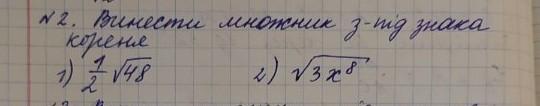 №2. Винести множник з-під знака
кореня
1) 1/2 √48 2) √3x⁸